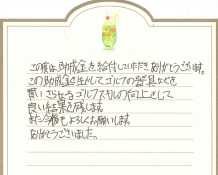 この度は助成金を給付していただきありがとうございます。
この助成金を生かしてゴルフの器具などを
買いさらなるゴルフスキルの向上をして
良い結果を残します。
また今後もよろしくお願いします。
ありがとうございました。